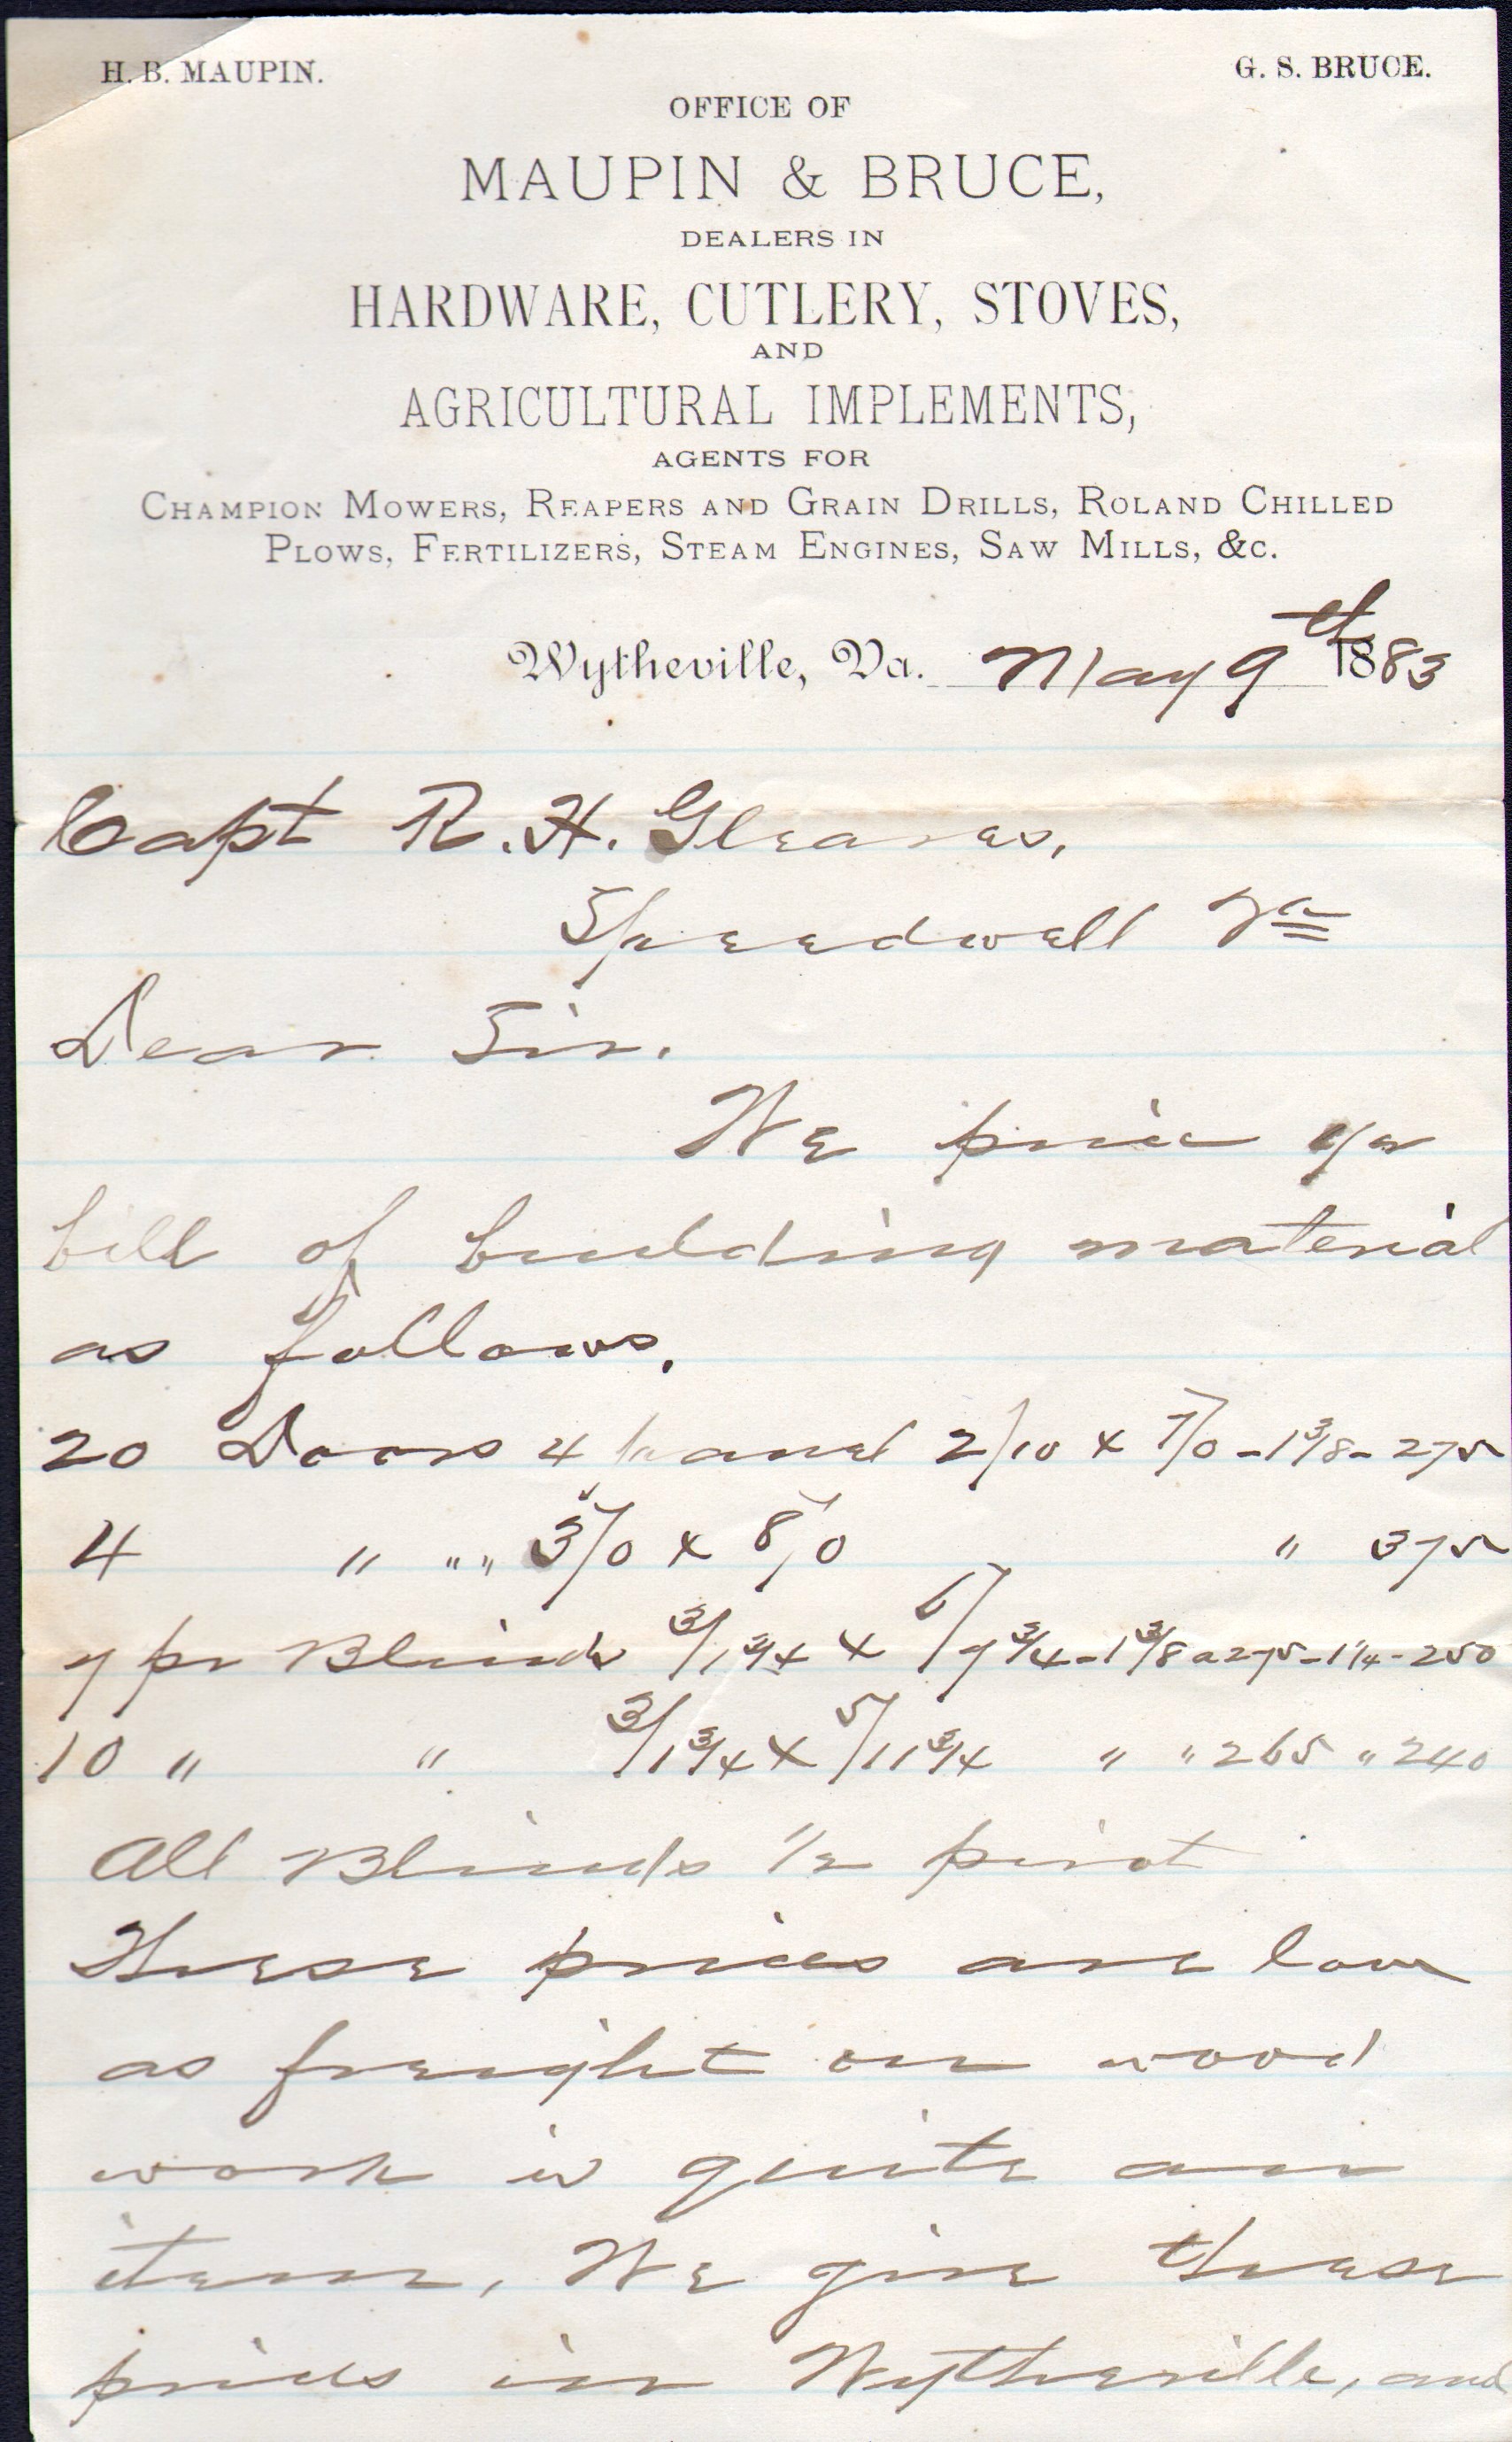 H. B. MAUPIN. G. S. BRUCE.
OFFICE OF
MAUPIN & BRUCE,
DEALERS IN
HARDWARE, CUTLERY, STOVES,
AND
AGRICULTURAL IMPLEMENTS,
AGENTS FOR
CHAMPION MOWERS, REAPERS AND GRAIN DRILLS, ROLAND CHILLED
PLOWS, FERTILIZERS, STEAM ENGINES, SAW MILLS, &C.
Wytheville, Va. May 9th 1883
Capt R. H. Gleaves,
Speedwell Va
Dear Sir.
We price yr
bill of building material
as follows.
20 Doors 4 panel 2/10 x 7/0 - 1 3/8 - 275
4 " " " 3/0 x 8/0 " 375
7 pr Blinds 3/1 3/4 x 6/7 3/4 - 1 3/8 a 275 - 1 1/4 - 250
10 " " 3/1 3/4 x 5/11 3/4 " " 265 " 240
All Blinds 1/2 pivot
These prices are low
as freight on wood
work is quite an
item, We give these
prices in Wytheville, and